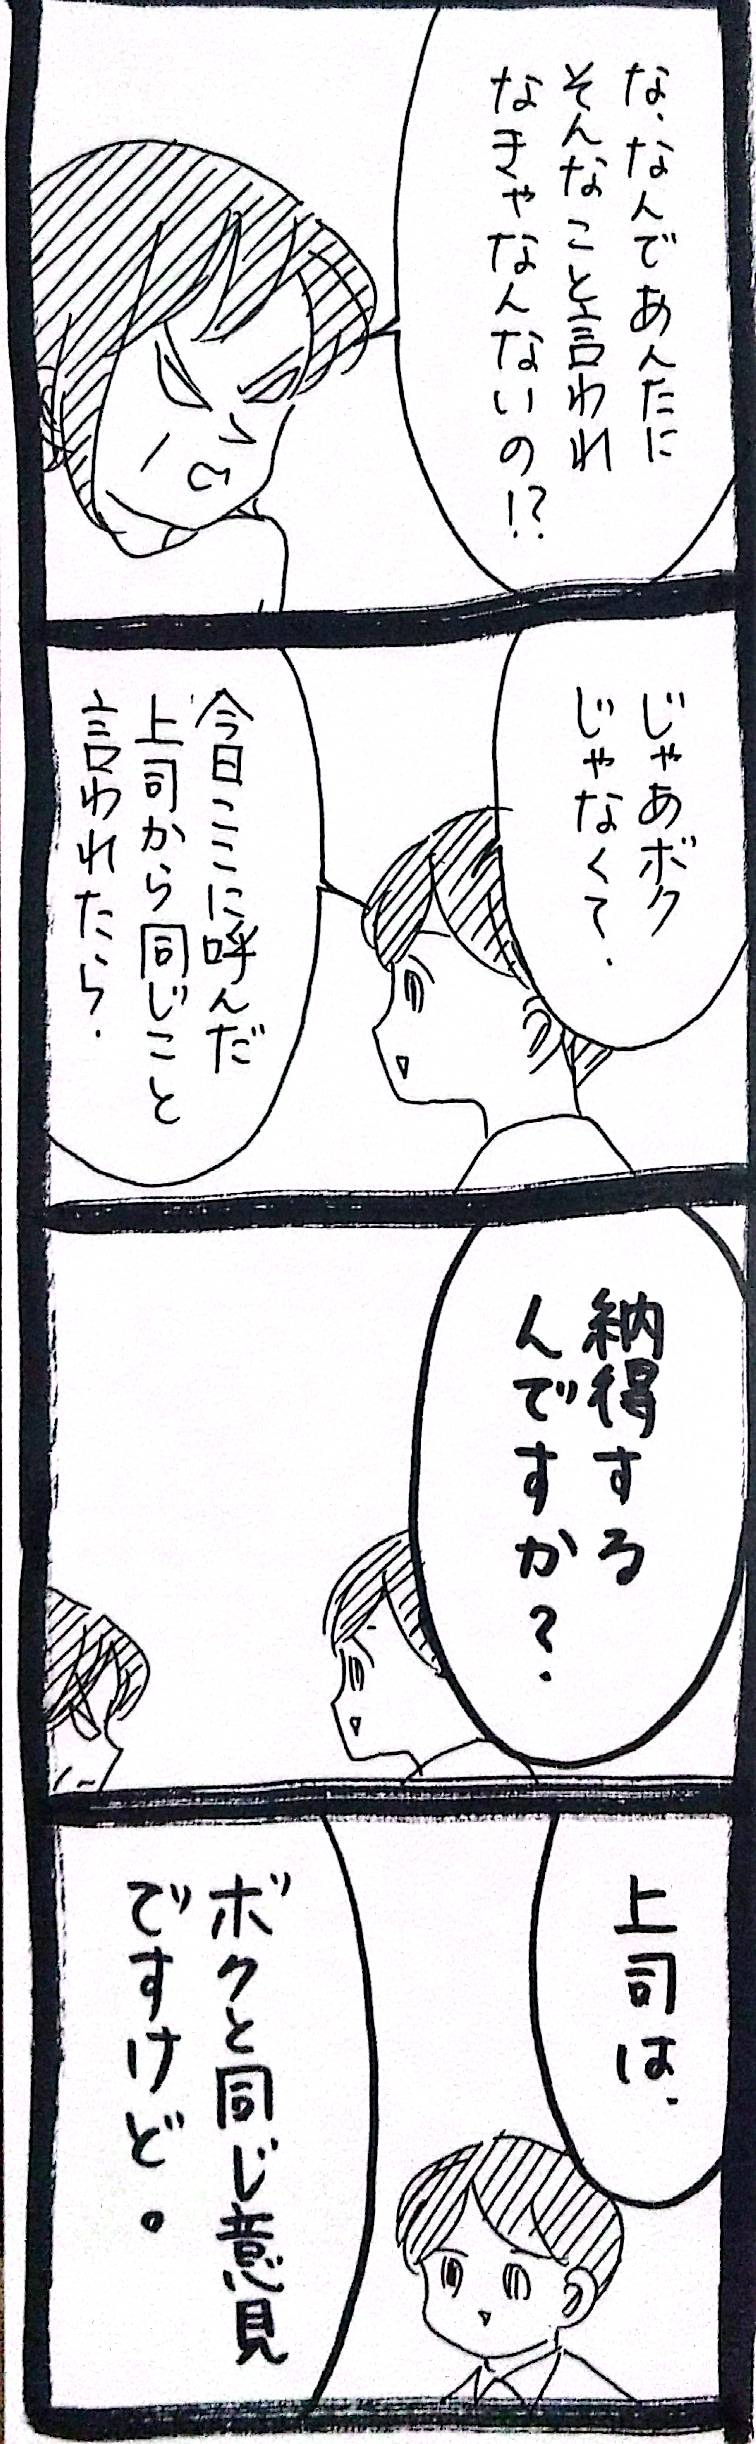 な、なんであんたに
そんなこと言われ
なきゃなんないの!?
じゃあボク
じゃなくて、
今日ここに呼んだ
上司から同じこと
言われたら、
納得する
んですか?
上司は、
ボクと同じ意見
ですけど。